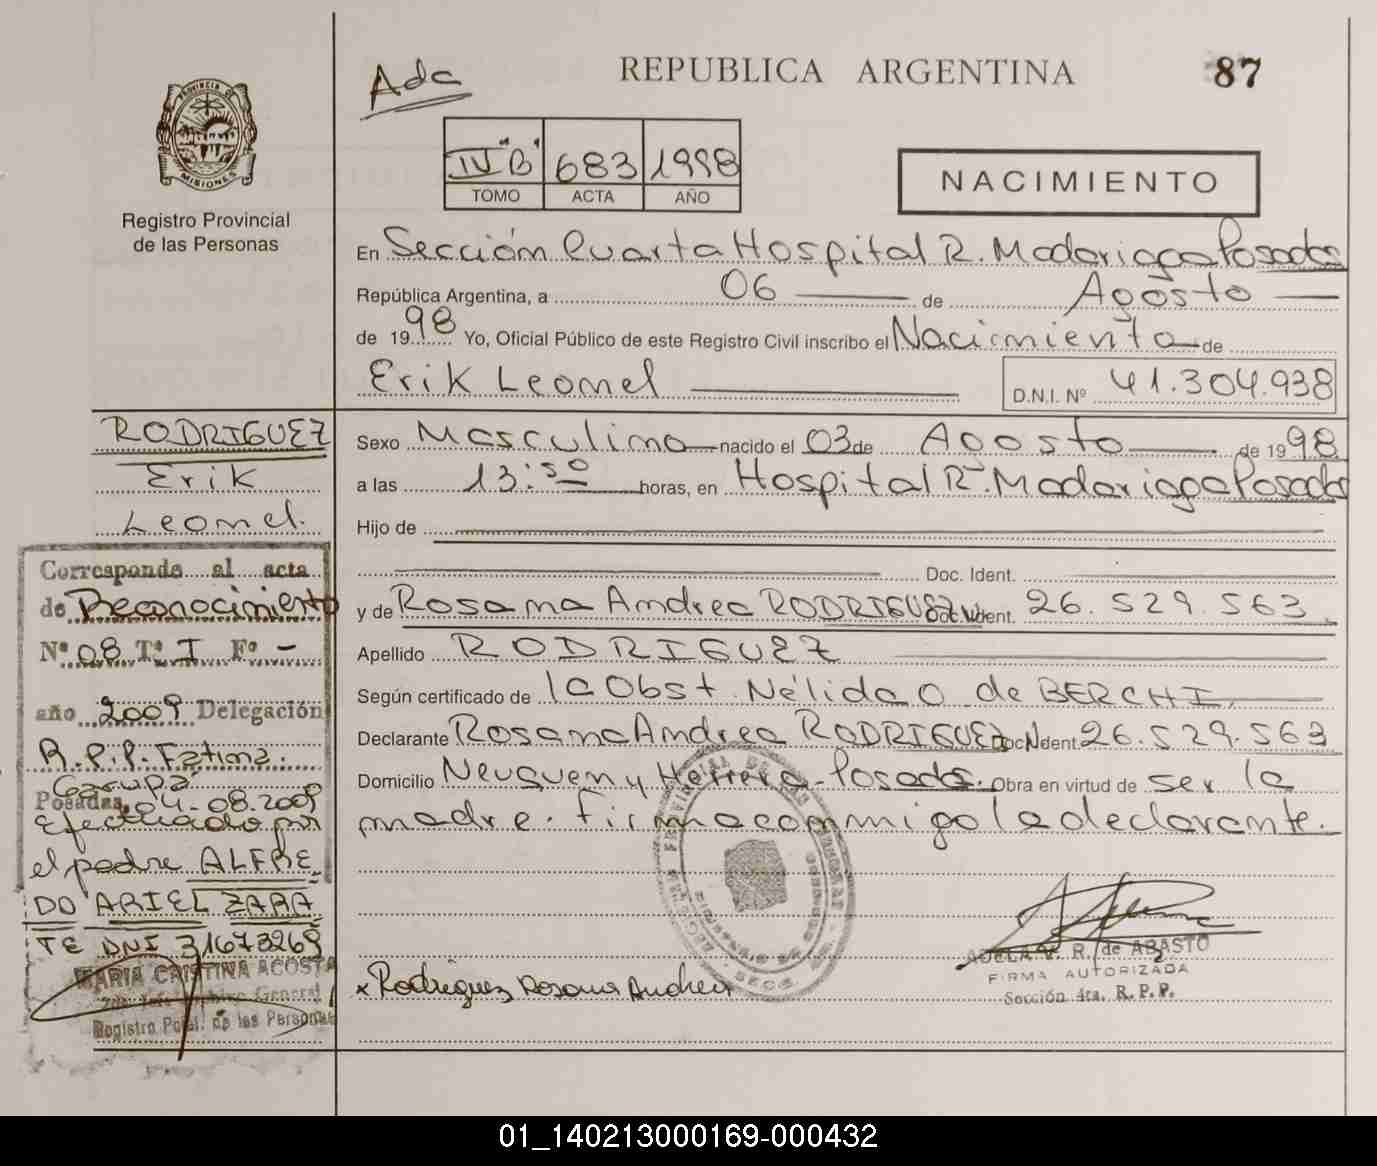 Ada
REPUBLICA ARGENTINA
87
PROVINCIA DE
MISIONES
Registro Provincial
de las Personas
IV "B" 683 1998
TOMO ACTA AÑO
NACIMIENTO
En Sección Cuarta Hospital R. Madariaga Posadas
República Argentina, a 06 de Agosto
de 1998 Yo, Oficial Público de este Registro Civil inscribo el Nacimiento de
Erik Leonel D.N.I. Nº 41.304.938
RODRIGUEZ
Erik
Leonel.
Sexo Masculino nacido el 03 de Agosto de 1998
a las 13:50 horas, en Hospital R. Madariaga Posadas
Hijo de
Doc. Ident.
y de Rosana Andrea RODRIGUEZ Doc. Ident. 26.529.563
Apellido RODRIGUEZ
Según certificado de la Obst. Nélida O de BERCHI.
Declarante Rosana Andrea RODRIGUEZ Doc. Ident. 26.529.563
Domicilio Neuquen y Herrera - Posadas. Obra en virtud de ser la
madre. firma conmigo la declarante.
Corresponde al acta
de Reconocimiento
Nº 08 Tº I Fº -
año 2009 Delegación
R.P.P. Fatima.
Garupá
Posadas, 04-08-2009
Efectuado por
el padre ALFRE
DO ARIEL ZARA
TE DNI 31673269
MARIA CRISTINA ACOSTA
General
Registro Pcial. de las Personas
x Rodriguez Rosana Andrea
ADELA V. R. de ABASTO
FIRMA AUTORIZADA
Sección 4ta. R. P. P.
01_140213000169-000432